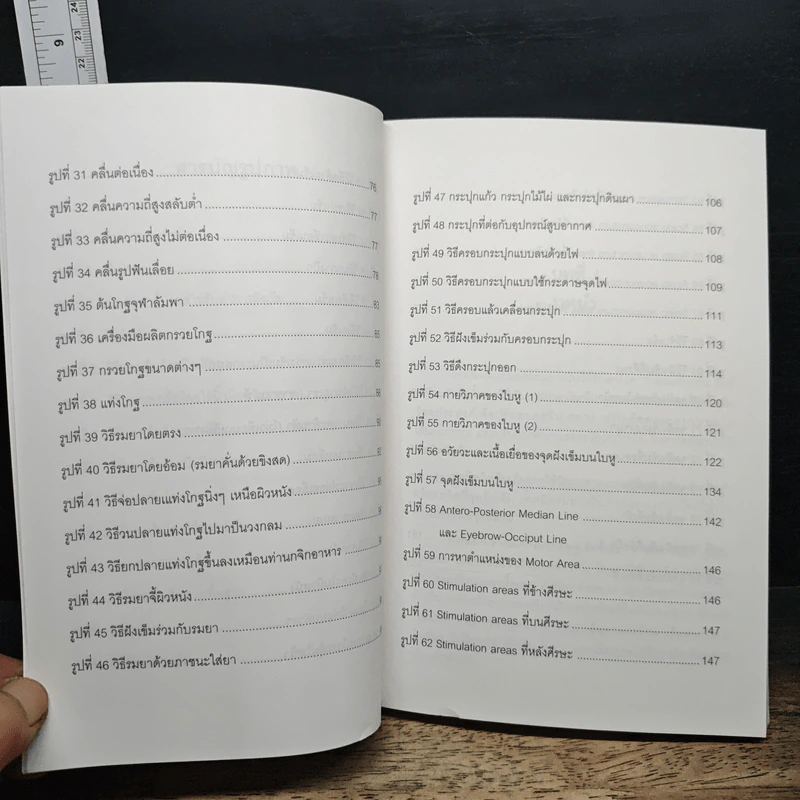 9
24
23
22
รูปที่ 31 คลื่นต่อเนื่อง 76
รูปที่ 32 คลื่นความถี่สูงสลับต่ำ 77
รูปที่ 33 คลื่นความถี่สูงไม่ต่อเนื่อง 77
รูปที่ 34 คลื่นรูปฟันเลื่อย 78
รูปที่ 35 ต้นโกฐจุฬาลัมพา 83
รูปที่ 36 เครื่องมือผลิตกรวยโกฐ
รูปที่ 37 กรวยโกฐขนาดต่างๆ
รูปที่ 38 แท่งโกฐ
รูปที่ 39 วิธีรมยาโดยตรง
รูปที่ 40 วิธีรมยาโดยอ้อม (รมยาคั่นด้วยขิงสด)
รูปที่ 41 วิธีจ่อปลายแท่งโกฐนิ่งๆ เหนือผิวหนัง
รูปที่ 42 วิธีวนปลายแท่งโกฐไปมาเป็นวงกลม
รูปที่ 43 วิธียกปลายแท่งโกฐขึ้นลงเหมือนท่านกจิกอาหาร
รูปที่ 44 วิธีรมยาจี้ผิวหนัง
รูปที่ 45 วิธีฝังเข็มร่วมกับรมยา
รูปที่ 46 วิธีรมยาด้วยภาชนะใส่ยา
รูปที่ 47 กระปุกแก้ว กระปุกไม้ไผ่ และกระปุกดินเผา 106
รูปที่ 48 กระปุกที่ต่อกับอุปกรณ์สูบอากาศ 107
รูปที่ 49 วิธีครอบกระปุกแบบลนด้วยไฟ 108
รูปที่ 50 วิธีครอบกระปุกแบบใช้กระดาษจุดไฟ 109
รูปที่ 51 วิธีครอบแล้วเคลื่อนกระปุก 111
รูปที่ 52 วิธีฝังเข็มร่วมกับครอบกระปุก 113
รูปที่ 53 วิธีดึงกระปุกออก 114
รูปที่ 54 กายวิภาคของใบหู (1) 120
รูปที่ 55 กายวิภาคของใบหู (2) 121
รูปที่ 56 อวัยวะและเนื้อเยื่อของจุดฝังเข็มบนใบหู 122
รูปที่ 57 จุดฝังเข็มบนใบหู 134
รูปที่ 58 Antero-Posterior Median Line 142
และ Eyebrow-Occiput Line
รูปที่ 59 การหาตำแหน่งของ Motor Area 146
รูปที่ 60 Stimulation areas ที่ข้างศีรษะ 146
รูปที่ 61 Stimulation areas ที่บนศีรษะ 147
รูปที่ 62 Stimulation areas ที่หลังศีรษะ 147